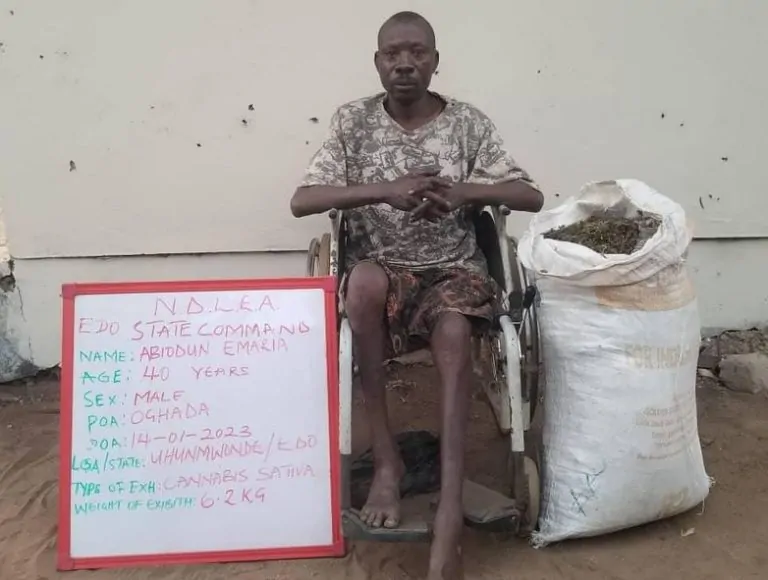 N.D.L.E.A
EDO STATE COMMAND
NAME: ABIODUN EMARIA
AGE: 40 YEARS
SEX: MALE
POA: OGHADA
DOA: 14-01-2023
LGA/STATE: UHUNMWONDE/EDO
TYPE OF EXH: CANNABIS SATIVA
WEIGHT OF EXIBITH: 6.2KG